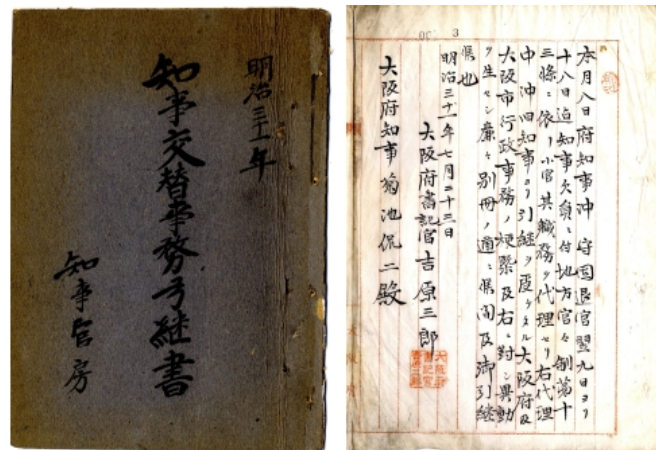 明治三十一年
知事交替事務引継書
知事官房
本月八日府知事沖守固退官翌九日ヨリ
十八日迄知事欠員ニ付地方官々制第十
三條ニ依リ小官其職務ヲ代理セリ右代理
中沖旧知事ヨリ引継ヲ受ケタル大阪府及
大阪市行政事務ノ硬緊及右ニ対シ異動
ヲ生セシ廉々別冊ノ通ニ候間及御引継
候也
明治三十一年七月二十三日
大阪府書記官吉原三郎
大阪府知事菊池侃二殿